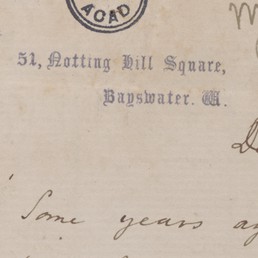 ACAD
51, Notting Hill Square,
Bayswater. W.
Some years